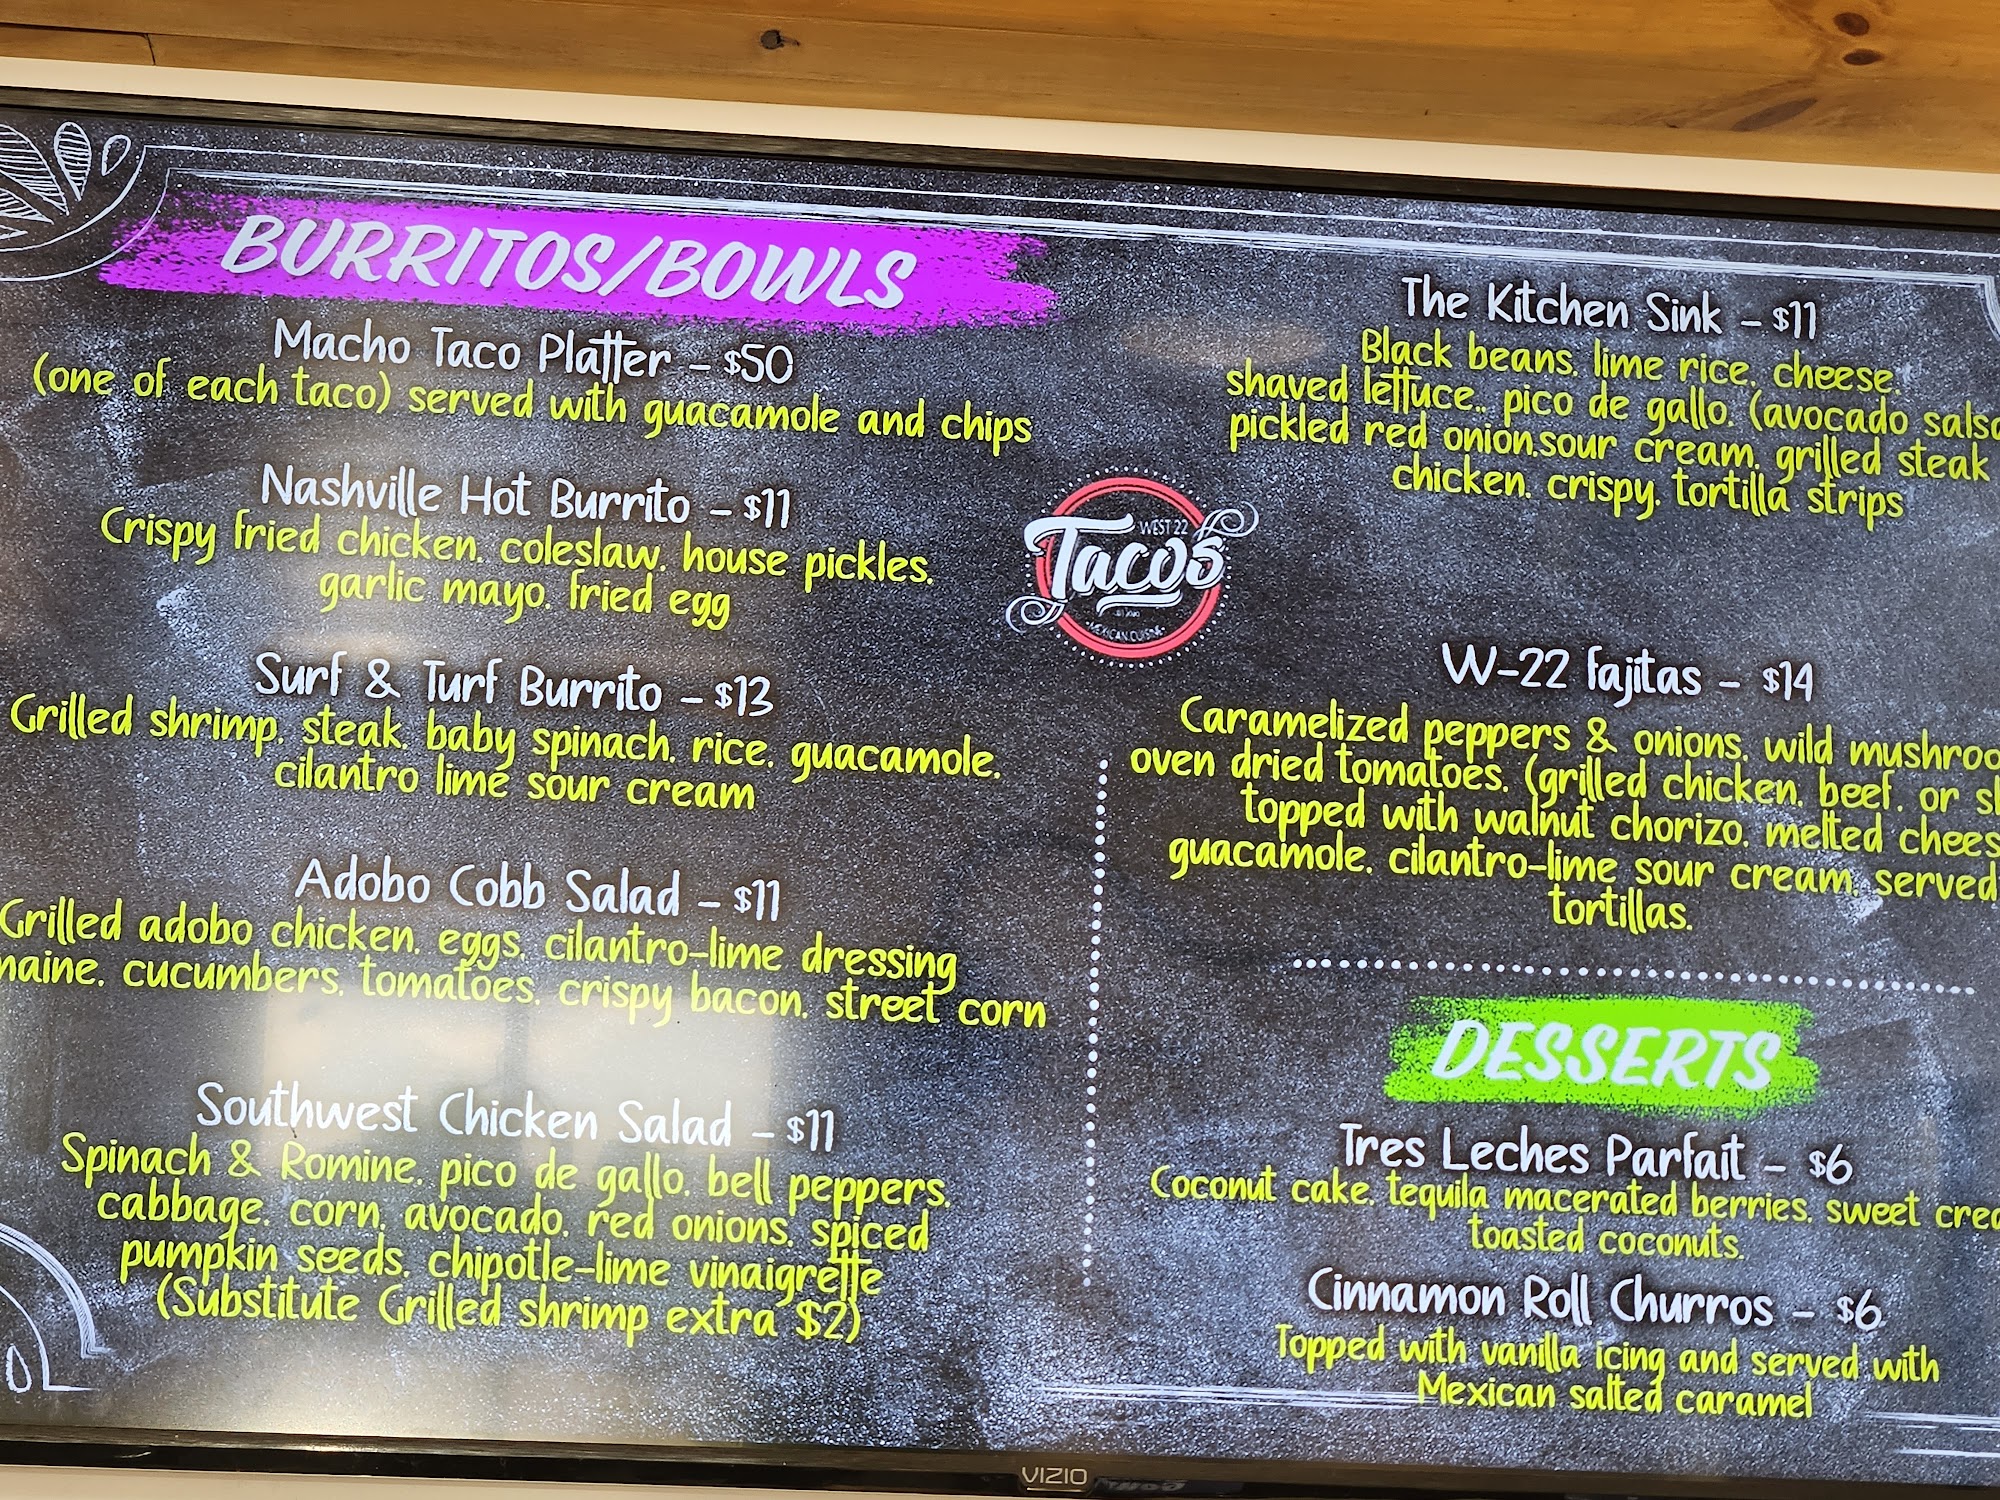 BURRITOS/BOWLS
Macho Taco Platter – $50
(one of each taco) served with guacamole and chips
Nashville Hot Burrito – $11
Crispy fried chicken, coleslaw, house pickles,
garlic mayo, fried egg
Surf & Turf Burrito – $13
Grilled shrimp, steak, baby spinach, rice, guacamole,
cilantro lime sour cream
Adobo Cobb Salad – $11
Grilled adobo chicken, eggs, cilantro-lime dressing
cucumbers, tomatoes, crispy bacon, street corn
Southwest Chicken Salad – $11
Spinach & Romine, pico de gallo, bell peppers,
cabbage, corn, avocado, red onions, spiced
pumpkin seeds, chipotle-lime vinaigrette
(Substitute Grilled shrimp extra $2)
WEST 22
Tacos
MEXICAN CUISINE
The Kitchen Sink – $11
Black beans, lime rice, cheese,
shaved lettuce,, pico de gallo, (avocado
pickled red onion,sour cream, grilled steak
chicken, crispy, tortilla strips
W-22 fajitas – $14
Caramelized peppers & onions, wild
oven dried tomatoes, (grilled chicken, beef, or
topped with walnut chorizo, melted
guacamole, cilantro-lime sour cream, served
tortillas.
DESSERTS
Tres Leches Parfait – $6
Coconut cake, tequila macerated berries, sweet
toasted coconuts.
Cinnamon Roll Churros – $6
Topped with vanilla icing and served with
Mexican salted caramel
VIZIO